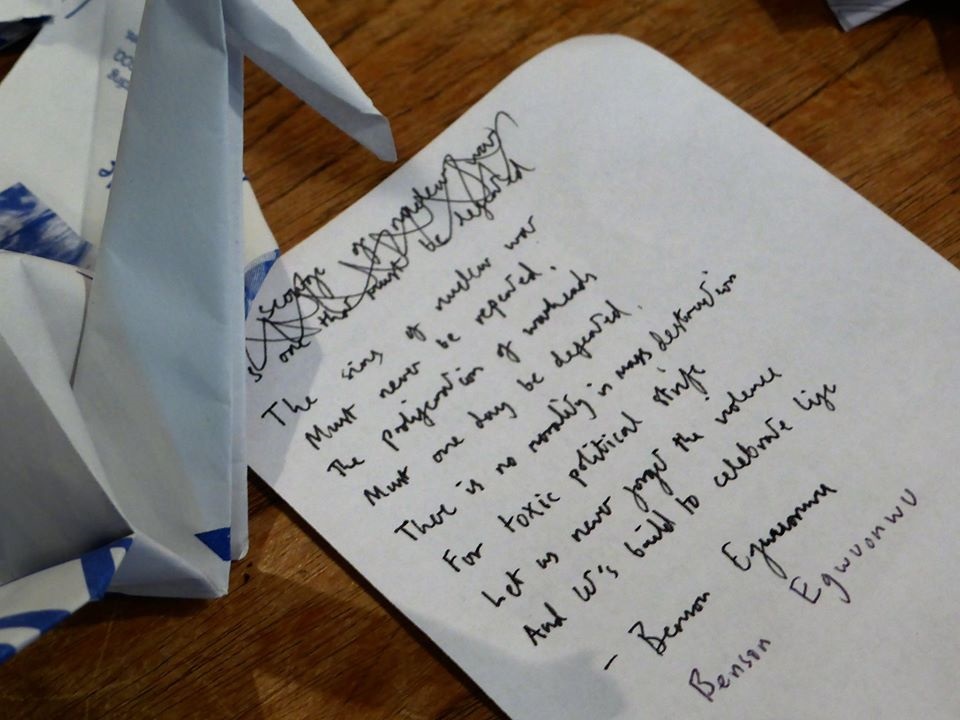 scourge of nuclear war
one that must be defeated
The sins of nuclear war
Must never be repeated.
The proliferation of warheads
Must one day be defeated.
There is no morality in mass destruction
For toxic political strife
Let us never forget the violence
And let's build to celebrate life
- Benson Egwuonwu
Benson Egwuonwu